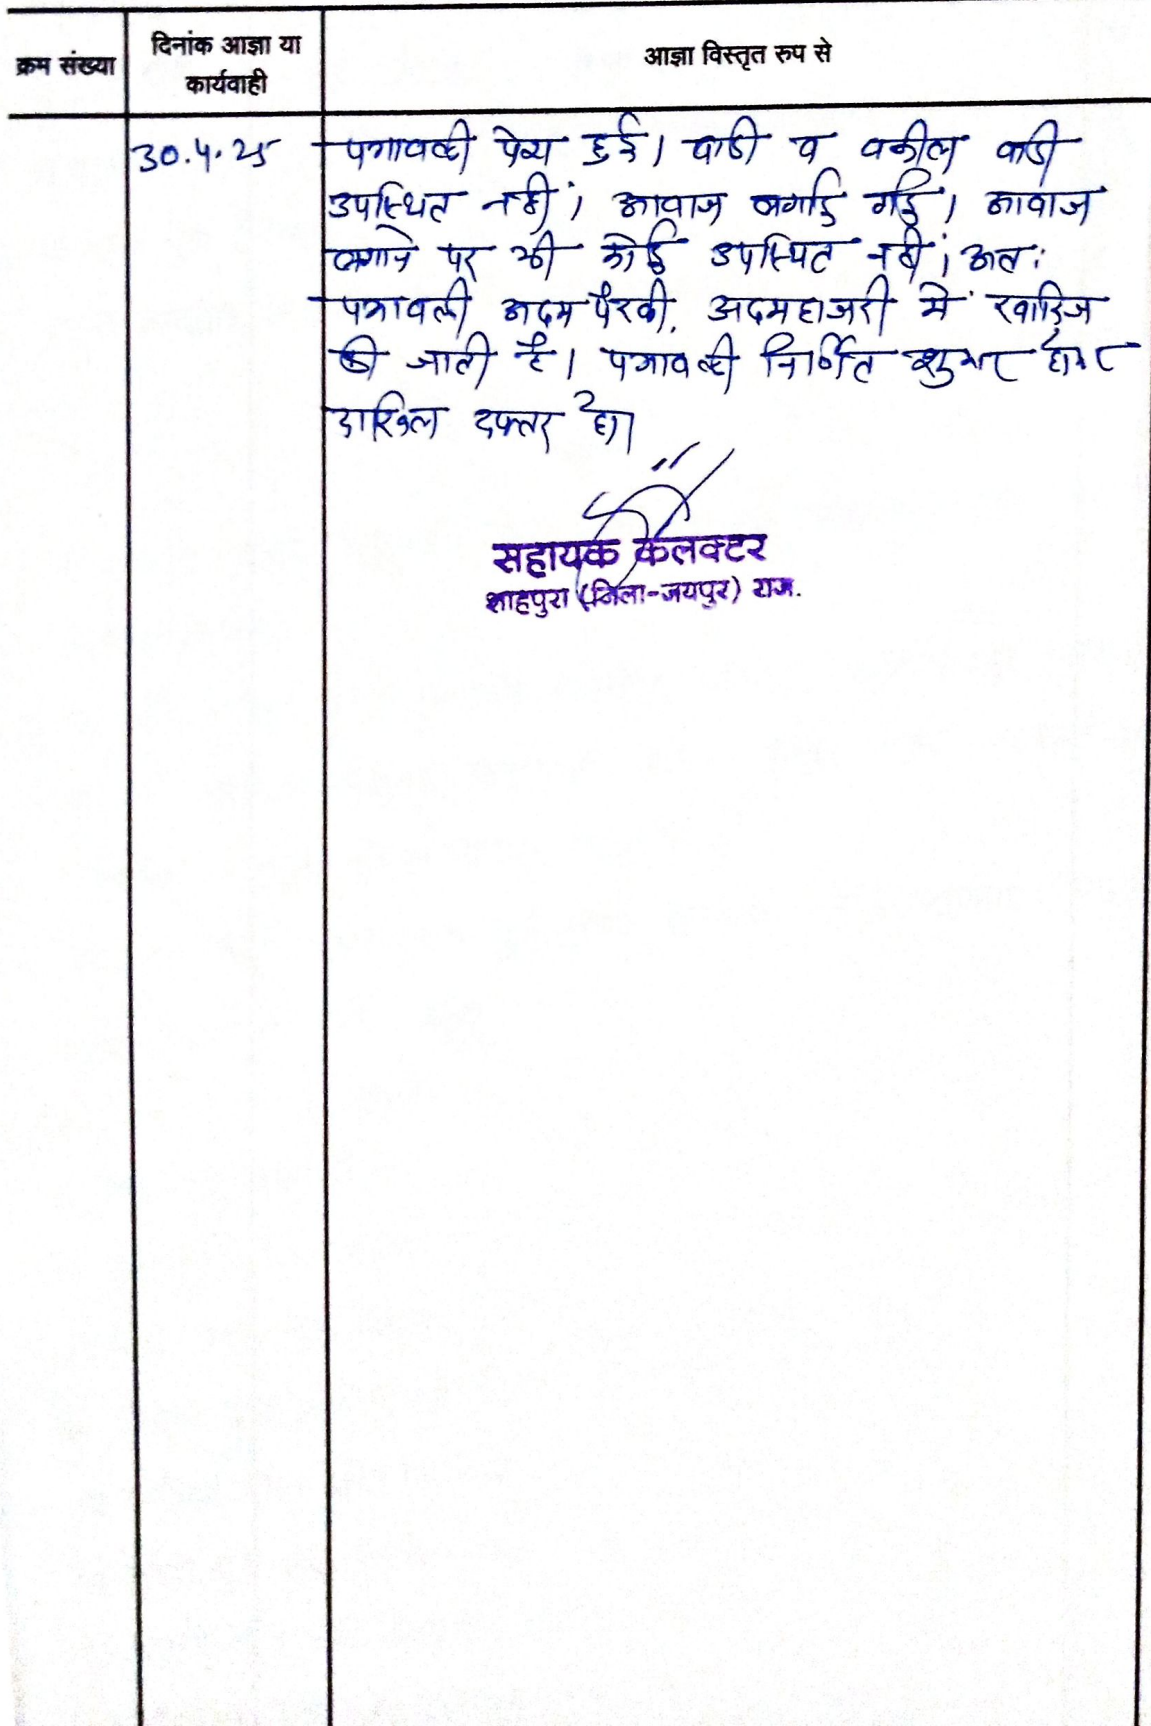 क्रम संख्या
दिनांक आज्ञा या
कार्यवाही
आज्ञा विस्तृत रुप से
30.4.25
पत्रावली पेश हुई। वादी व वकील वादी
उपस्थित नहीं। आवाज लगाई गई। आवाज
लगाने पर भी कोई उपस्थित नहीं। अतः
पत्रावली अदम पैरवी, अदमहाजरी में खारिज
की जाती है। पत्रावली निर्णित शुमार होकर
दाखिल दफ्तर हो।
सहायक कलक्टर
शाहपुरा (जिला-जयपुर) राज.